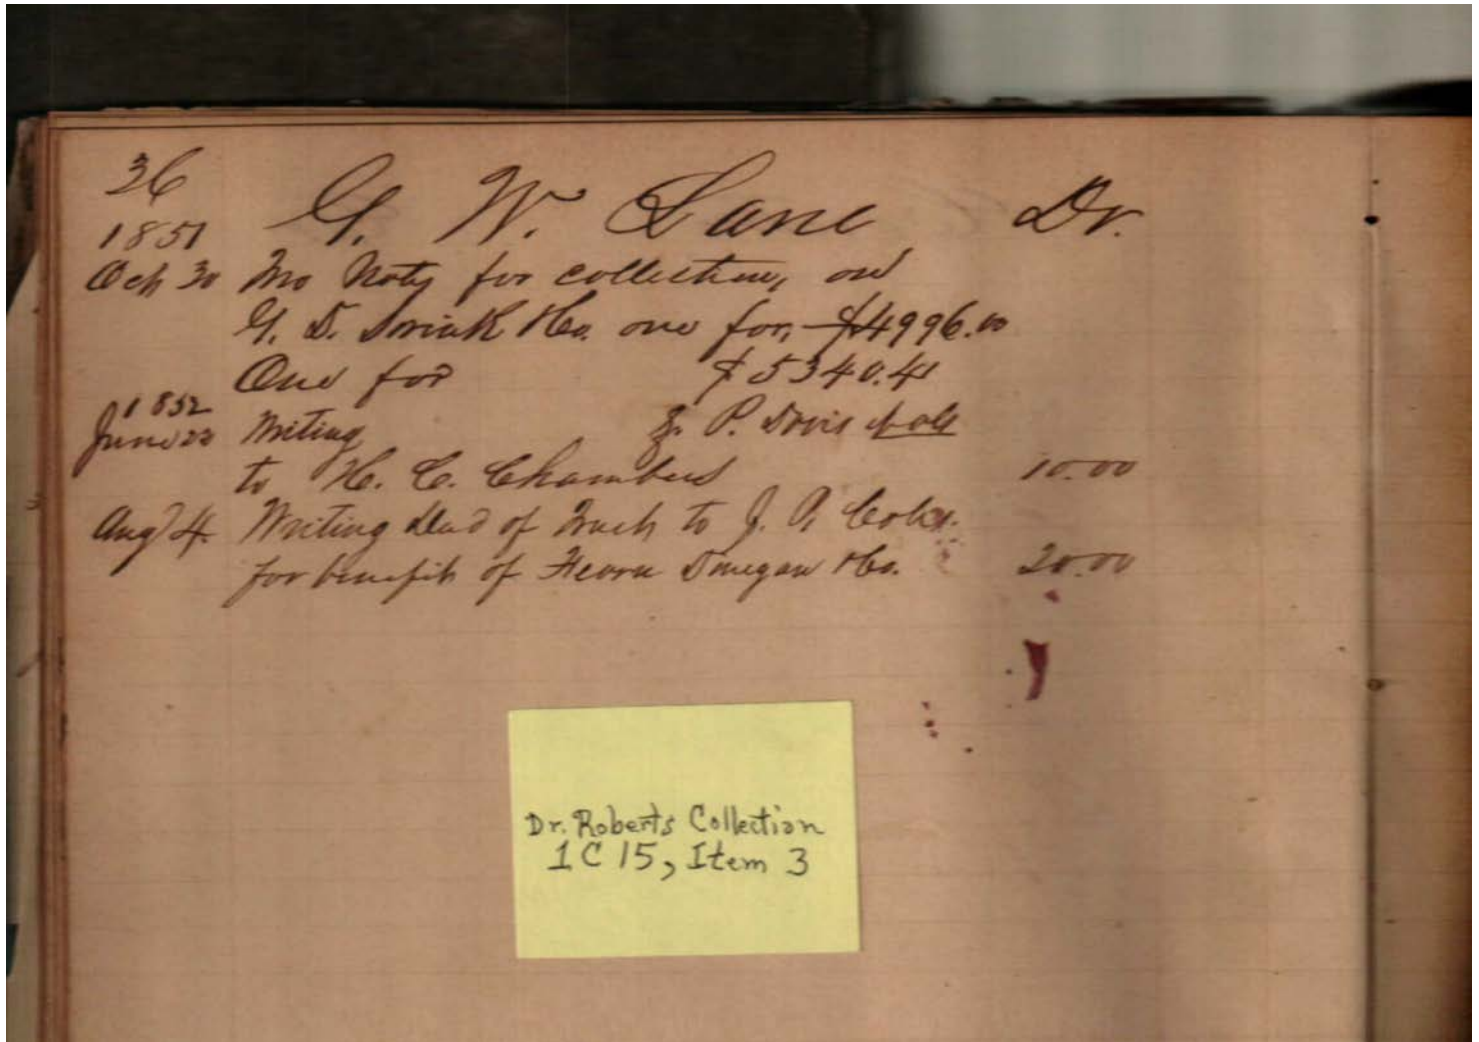 36
G. W. Lane Dr.
1851
Oct 30 Two Notes for collection, on
G. D. & Co. one for, $4996.00
One for $5340.41
1852
June 22 Writing
to H. C. Chambers 10.00
Aug 4. Writing Deed of Trust to J. P. Coles
for benefit of Fearn Donegan & Co. 20.00
Dr. Roberts Collection
1C15, Item 3